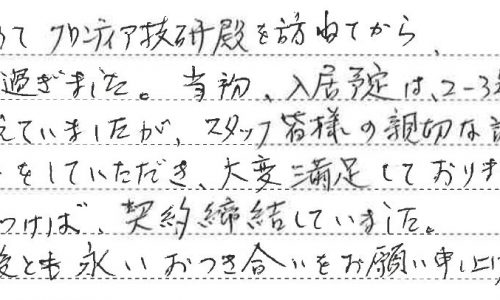 めて フロンティア技研殿を訪ねてから、
過ぎました。当初、入居予定は、2-3
えていましたが、スタッフ皆様の親切な
をしていただき、大変満足しておりま
つけば、契約締結していました。
後とも永いおつき合いをお願い申し上げ